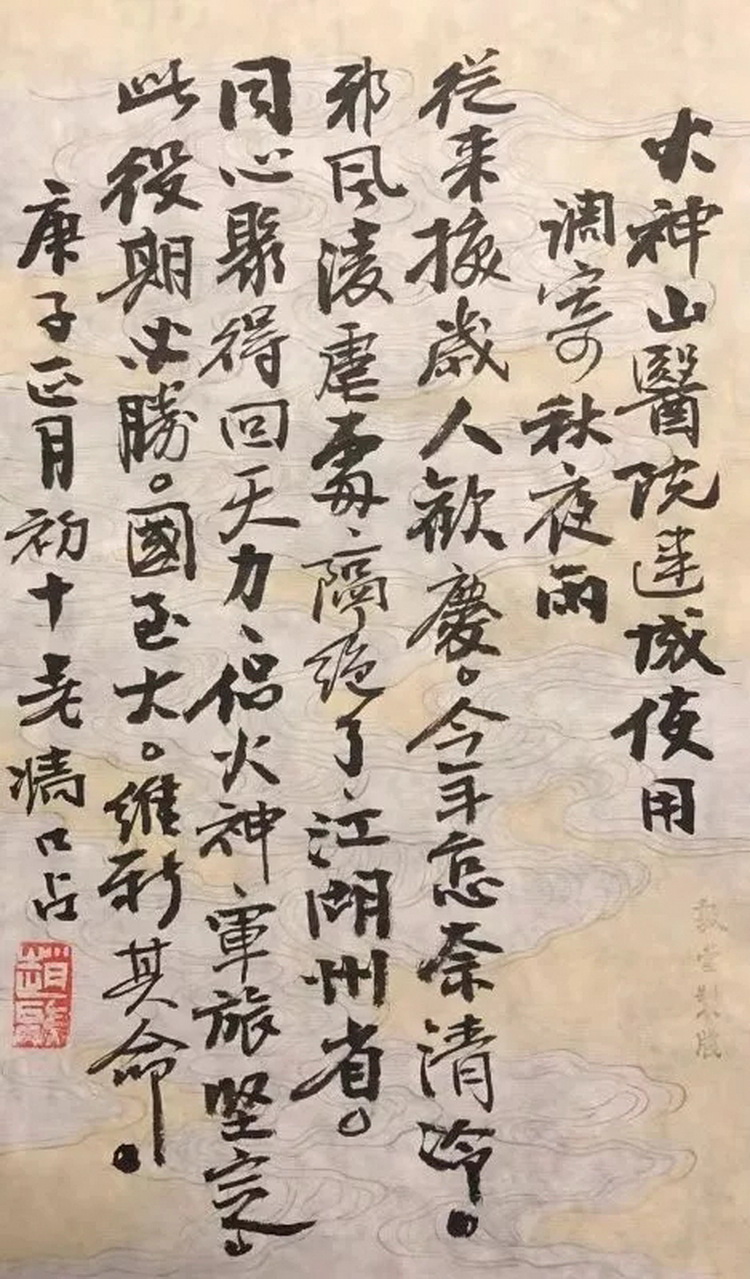 火神山醫院建成使用
調寄秋夜雨
從來換歲人歡慶。今年怎奈清冷。
邪風凌虐處、隔絕了、江湖州省。
同心聚得回天力、侶火神、軍旅堅定、
此役期必勝。國至大。維新其命。
庚子正月初十堯
口占
敬堂製牋